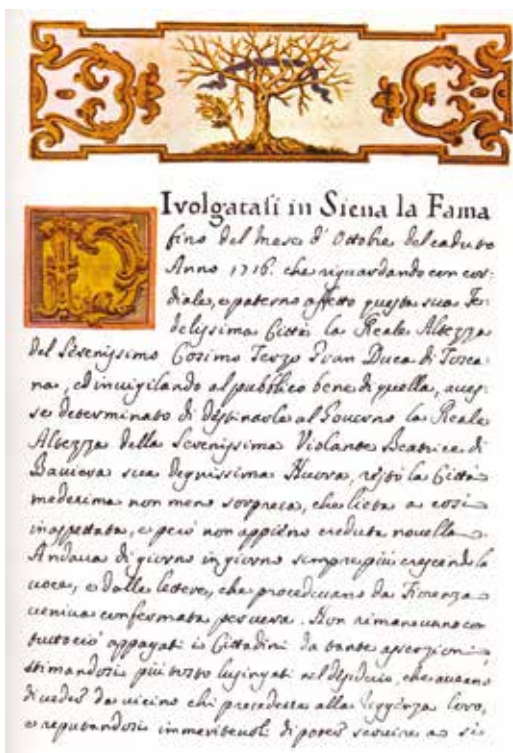 DIvolgatasi in Siena la Fama
fino del mese d' Ottobre del caduto
Anno 1716. che riguardando con cor-
diale, e paterno affetto questa sua Fe-
delissima Città la Reale Altezza
del Serenissimo Cosimo Terzo Gran Duca di Tosca-
na, ed invigilando al pubblico bene di quella, aves-
se determinato di destinarle al Governo la Reale
Altezza della Serenissima Violante Beatrice di
Baviera sua degnissima Nuora, restò la Città
medesima non meno sorpresa, che lieta a così
inaspettata, e però non appieno creduta novella.
Andava di giorno in giorno sempre più crescendo la
voce, e dalle lettere, che procedevano da Fiorenza
veniva confermata per vera. Non rimanevano con
tuttociò appagati i Cittadini da tante asserzioni,
stimandosi più tosto lusingati nel desiderio, che avevano
di veder da vicino chi precedesse alla Reggenza loro,
e reputandosi immeritevoli di poter servire a sì